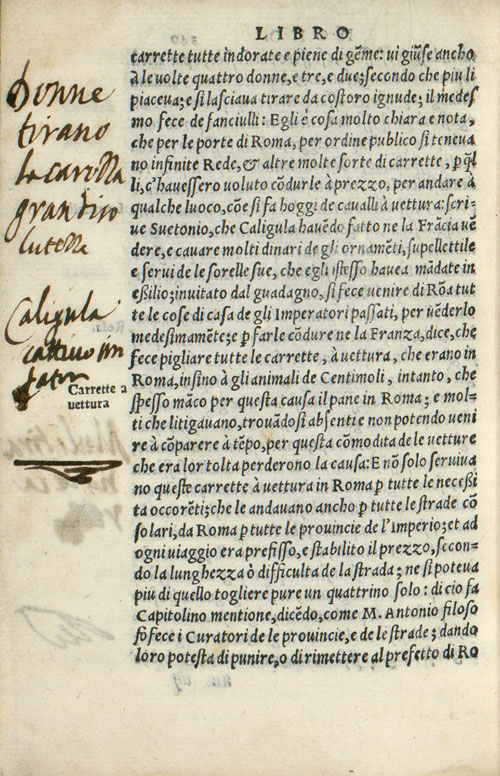 LIBRO
carrette tutte indorate e piene di gẽme: ui giũse ancho
à le uolte quattro donne, e tre, e due; secondo che piu li
piaceua; e si lasciaua tirare da costoro ignude; il medes
mo fece de fanciulli: Egli é cosa molto chiara e nota,
che per le porte di Roma, per ordine publico si teneua
no infinite Rede, & altre molte sorte di carrette, p q̃l
li, c'hauessero uoluto cõdurle à prezzo, per andare à
qualche luoco, cõe si fa hoggi de caualli à uettura: scri-
ue Suetonio, che Caligula hauẽdo fatto ne la Frãcia uẽ
dere, e cauare molti dinari de gli ornamẽti, supellettile
e serui de le sorelle sue, che egli istesso hauea mãdate in
eßilio; inuitato dal guadagno, si fece uenire di Rõa tut
te le cose di casa de gli Imperatori passati, per uẽderlo
medesimamẽte; e p farle cõdurre ne la Franza, dice, che
fece pigliare tutte le carrette, à uettura, che erano in
Roma, insino à gli animali de Centimoli, intanto, che
spesso mãco per questa causa il pane in Roma; e mol-
ti che litigauano, trouãdosi absenti e non potendo ueni
re à cõparere à tẽpo, per questa cõmodita de le uetture
che era lor tolta perderono la causa: E nõ solo seruiua
no queste carrette à uettura in Roma p tutte le necessi
ta occorẽti; che le andauano ancho p tutte le strade cõ
solari, da Roma p tutte le prouincie de l'Imperio; et ad
ogni uiaggio era prefisso, e stabilito il prezzo, secon-
do la lunghezza ò difficulta de la strada; ne si poteua
piu di quello togliere pure un quattrino solo: di cio fa
Capitolino mentione, dicẽdo, come M. Antonio filoso
fo fece i Curatori de le prouincie, e de le strade; dando
loro potesta di punire, o di rimettere al prefetto di Ro
Donne
tirano
la carolla
Caligula
cattiuo im
Carrette a
uettura